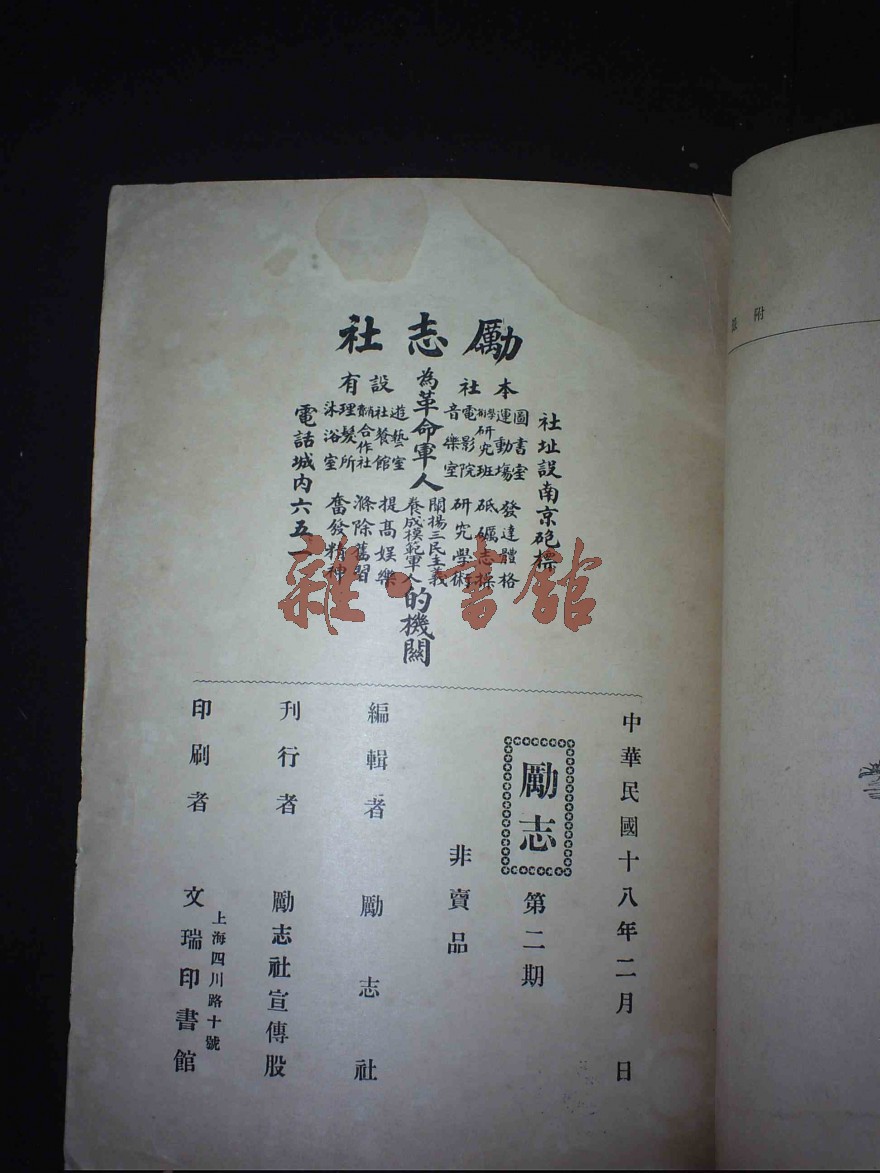 勵志社
社址設南京砲標
本社設有
圖書室
運動場
學術研究班
電影院
音樂室
為革命軍人
遊藝室
社餐館
消費合作社
理髮所
沐浴室
發達體格
砥礪志操
研究學術
闡揚三民主義
養成模範軍人
提高娛樂
滌除舊習
奮發精神
的機關
電話城內六五一
中華民國十八年二月 日
勵志
第二期
非賣品
編輯者 勵志社
刊行者 勵志社宣傳股
印刷者 文瑞印書館
上海四川路十號
附
雜·書館